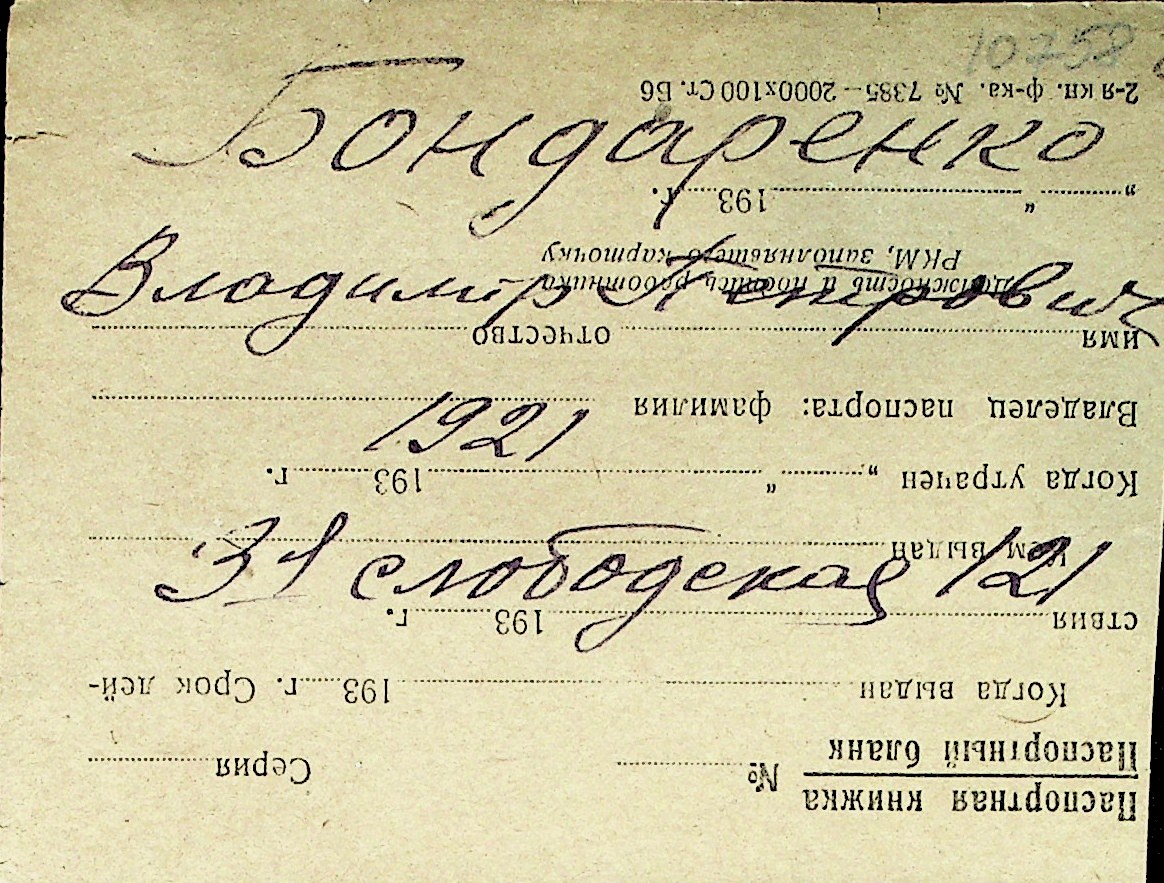 10758
Бондаренко
Владимир Петрович
1921
31 слободская 121
Паспортная книжка
Паспортный бланк
№ Серия
Когда выдан 193 г. Срок дей-
ствия 193 г.
Кем выдан
Когда утрачен „ “ 193 г.
Владелец паспорта: фамилия
имя отчество
Должность и подпись работника
РКМ, заполнявшего карточку
„ “ 193 г.
2-я кн. ф-ка. № 7385—2000х100 Ст. Б6